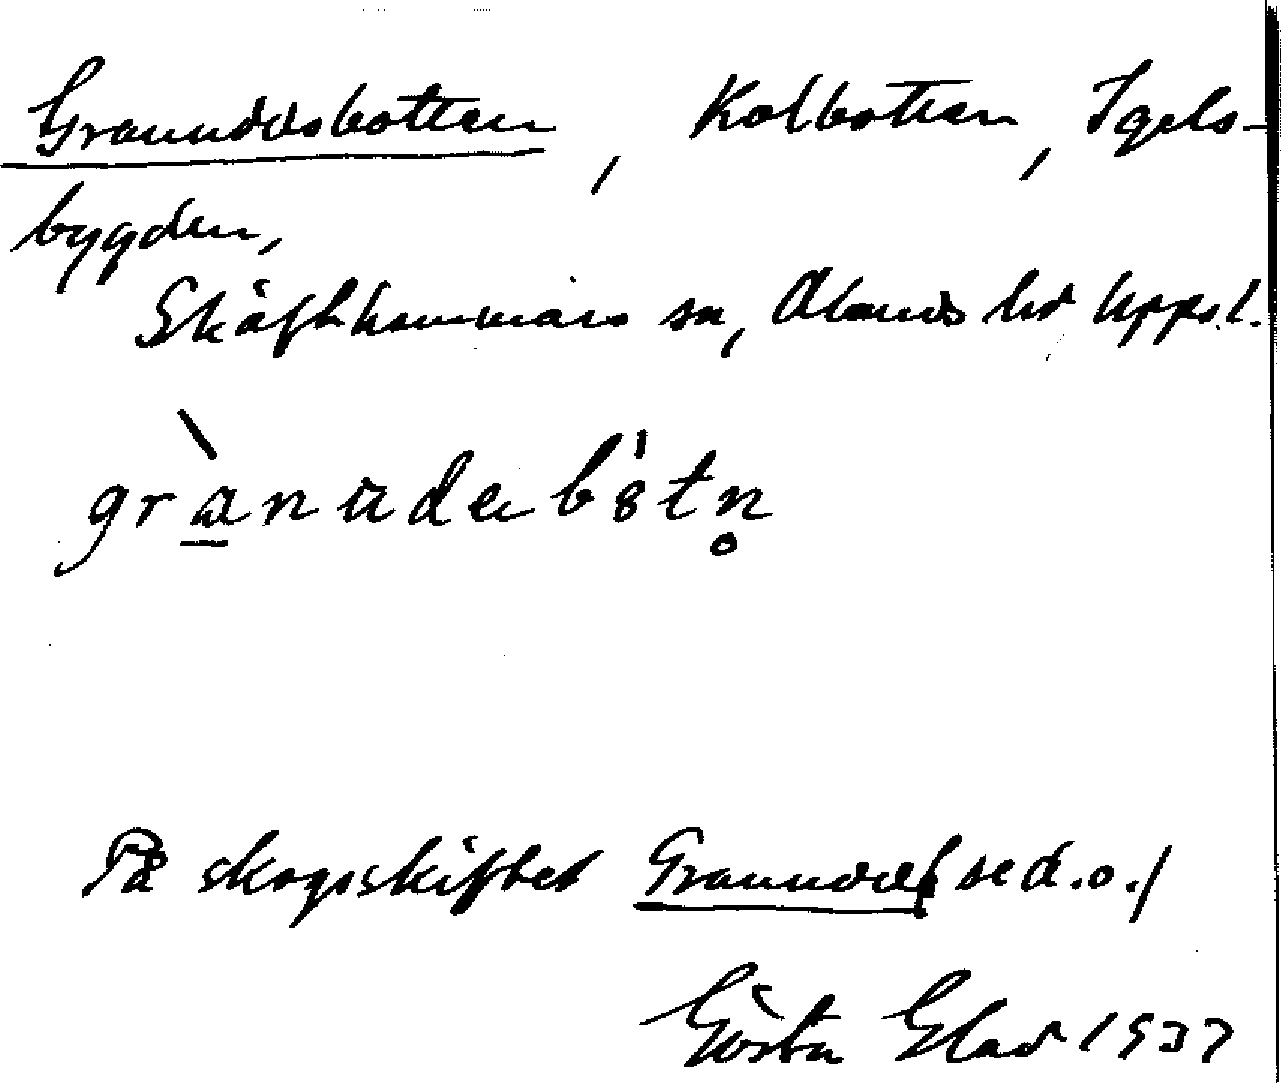 Granuddsbotten, Kolbotten, Igels-
bygden,
Skäfthammars sn, Olands hd Upps.l.
grànudebòtn̥
På skogsskiftet Granudde (se d.o.)
Gösta Glad 1937